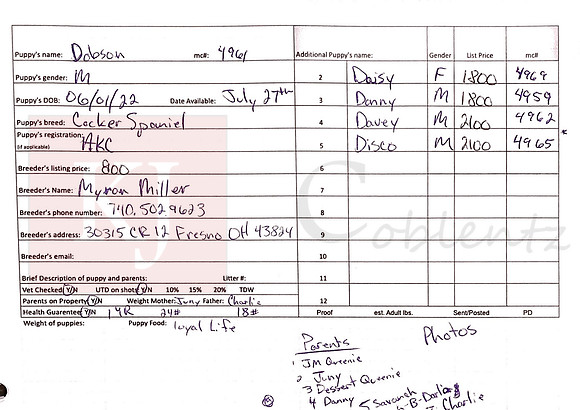 Puppy's name: Dobson mc#: 4961 Additional Puppy's name: Gender List Price mc#
Puppy's gender: M 2 Daisy F 1800 4969
Puppy's DOB: 06/01/22 Date Available: July 27th 3 Danny M 1800 4959
Puppy's breed: Cocker Spaniel 4 Davey M 2100 4962
Puppy's registration: (if applicable) AKC 5 Disco M 2100 4965
Breeder's listing price: 800 6
Breeder's Name: Myron Miller 7
Breeder's phone number: 740.5029623 8
Breeder's address: 30315 CR 12 Fresno OH 43824 9
Breeder's email: 10
Brief Description of puppy and parents: Litter #: 11
Vet Checked Y/N UTD on shots Y/N 10% 15% 20% TDW
Parents on Property Y/N Weight Mother: Juny Father: Charlie 12
Health Guarantee Y/N 1 YR 24# 18# Proof est. Adult lbs. Sent/Posted PD
Weight of puppies: Puppy Food: loyal Life
Photos
Parents
1 JM Queenie
2 Juny
3 Dessert Queenie
4 Danny < Savannah
Charlie
KJ Coblentz